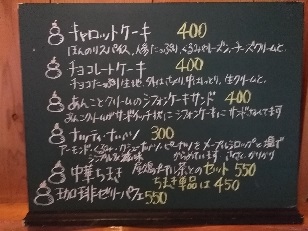 キャロットケーキ 400
ほんのりスパイス、人参たっぷり、くるみやレーズン、チーズクリームと。
チョコレートケーキ 400
チョコたっぷり生地、外はさっくり中はしっとり、生クリームと。
あんことクリームのシフォンケーキサンド 400
あんことクリームがサンドイッチ状にシフォンケーキにサンドされてます
ナッティ 300
アーモンド、くるみ、カシューナッツ をメープルシロップと
シンプルな
中華ちまき お茶とのセット 550
ちまき単品は 450
珈琲ゼリーパフェ 550